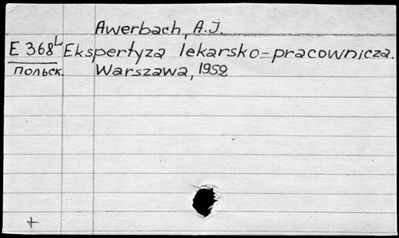 Awerbach, A.J.
E 368L Ekspertyza lekarsko=pracownicza.
польск. Warszawa, 1952
+